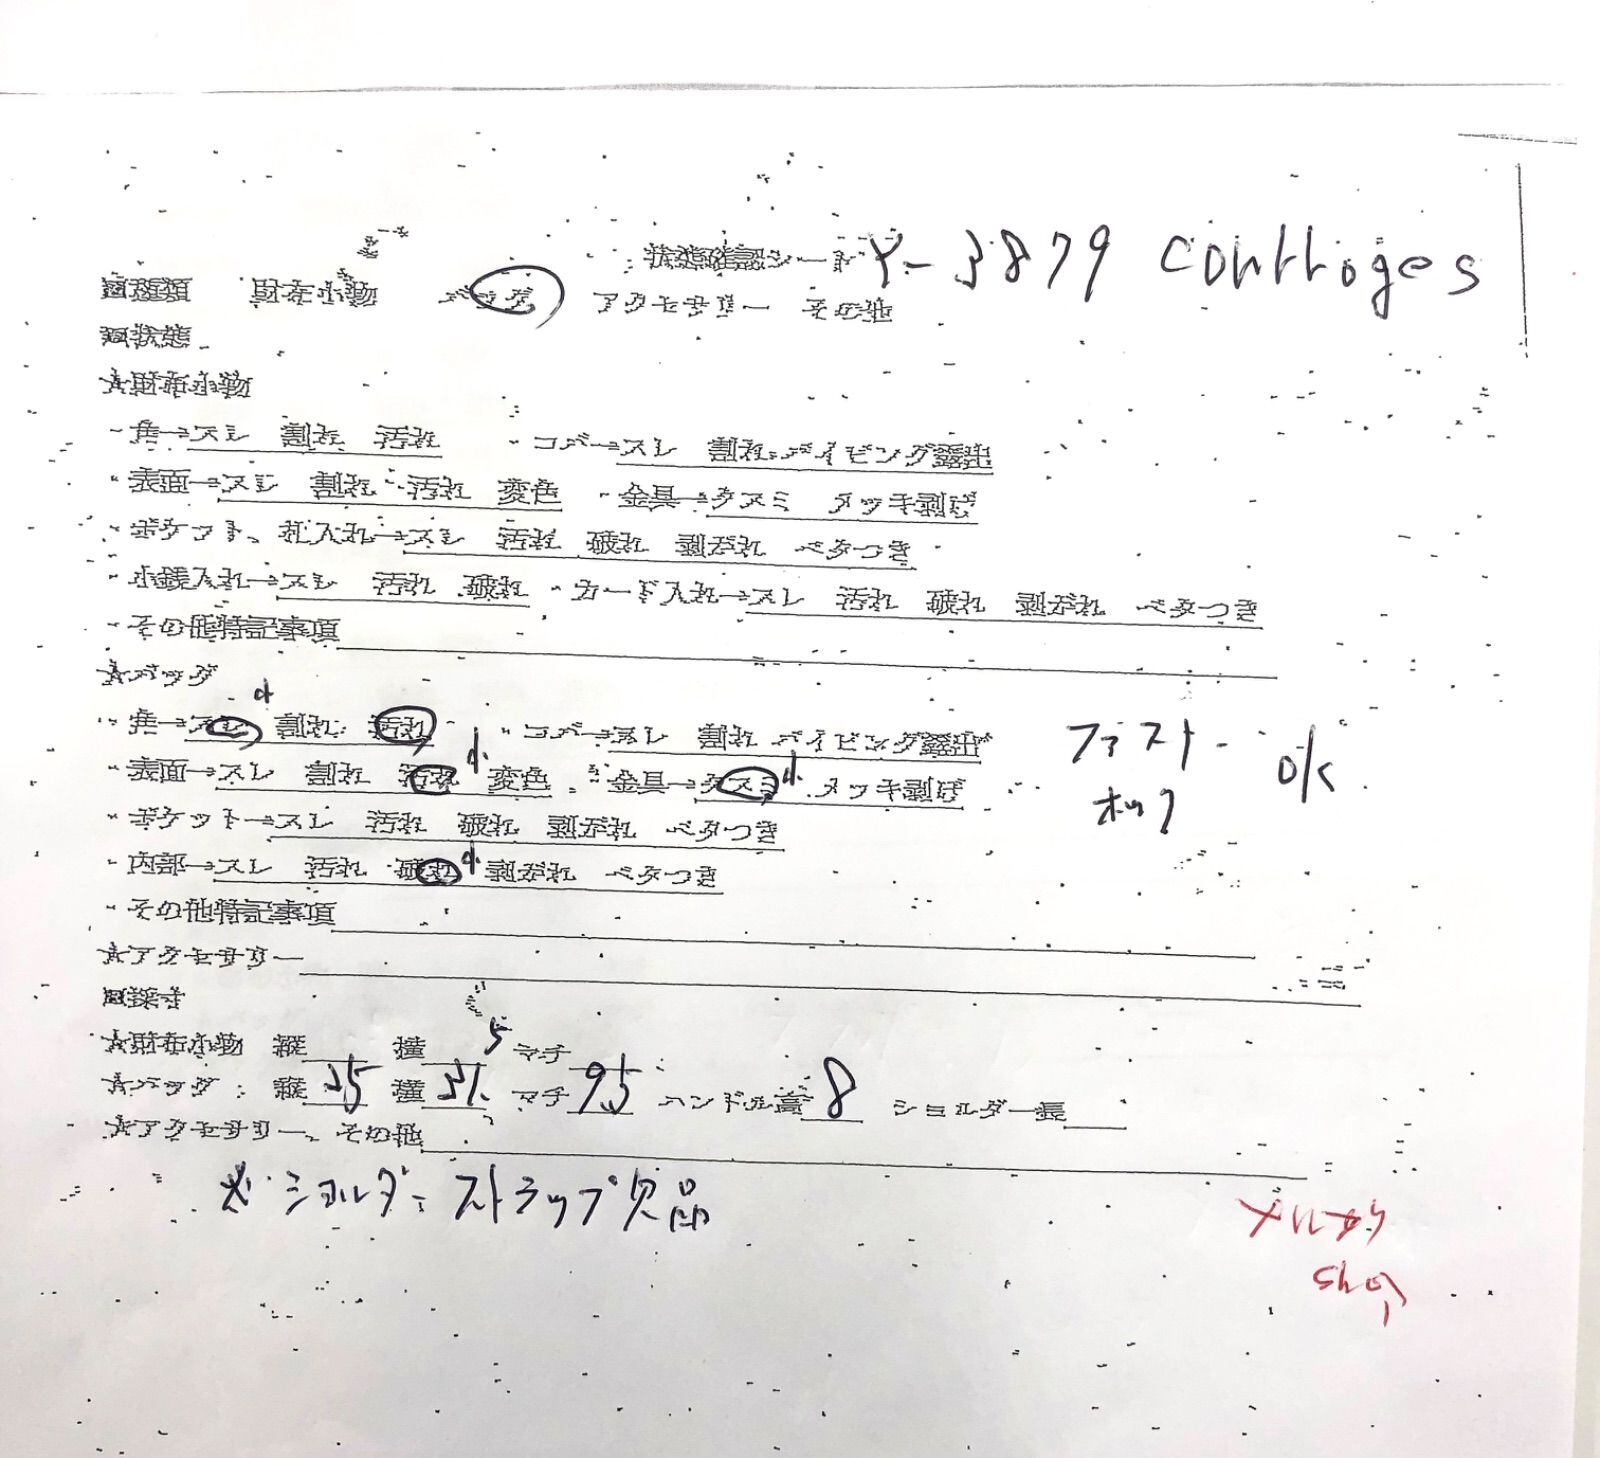 状態確認シート Y-3879 Courrèges
▣種類 財布小物 バッグ アクセサリー その他
▣状態
☆財布小物
・角→スレ 割れ 汚れ ・コバ→スレ 割れ パイピング露出
・表面→スレ 割れ 汚れ 変色 ・金具→クスミ メッキ剥げ
・ポケット、札入れ→スレ 汚れ 破れ 剥がれ ベタつき
・小銭入れ→スレ 汚れ 破れ ・カード入れ→スレ 汚れ 破れ 剥がれ ベタつき
・その他特記事項
☆バッグ
・角→スレ 小 割れ 汚れ ・コバ→スレ 割れ パイピング露出 ファスナー ok
・表面→スレ 割れ 汚れ 小 変色 ・金具→クスミ 小 メッキ剥げ ホック
・ポケット→スレ 汚れ 破れ 剥がれ ベタつき
・内部→スレ 汚れ 破れ 小 剥がれ ベタつき
・その他特記事項
☆アクセサリー
▣採寸
☆財布小物 縦 横 マチ
☆バッグ 縦 25 横 31.5 マチ 9.5 ハンドル高 8 ショルダー長
☆アクセサリー、その他
※ショルダーストラップ欠品
メルカリ
shop